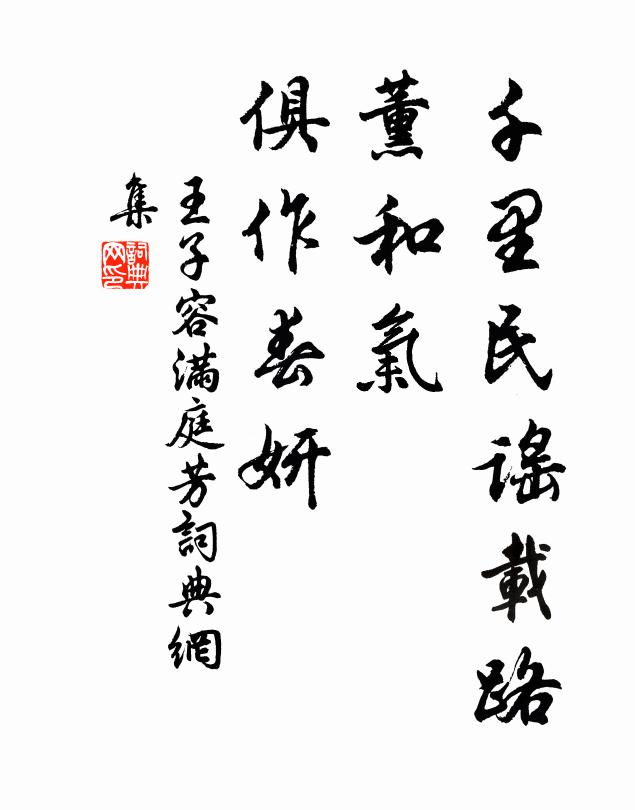 千里民謠載路
薰和氣
俱作春妍
王子容滿庭芳詞典網
集
詞典
网印